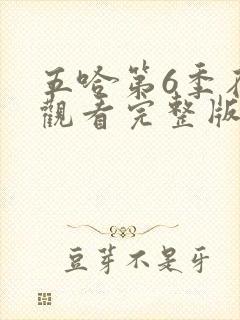 五哈第6季
觀看完整版
豆芽不是牙